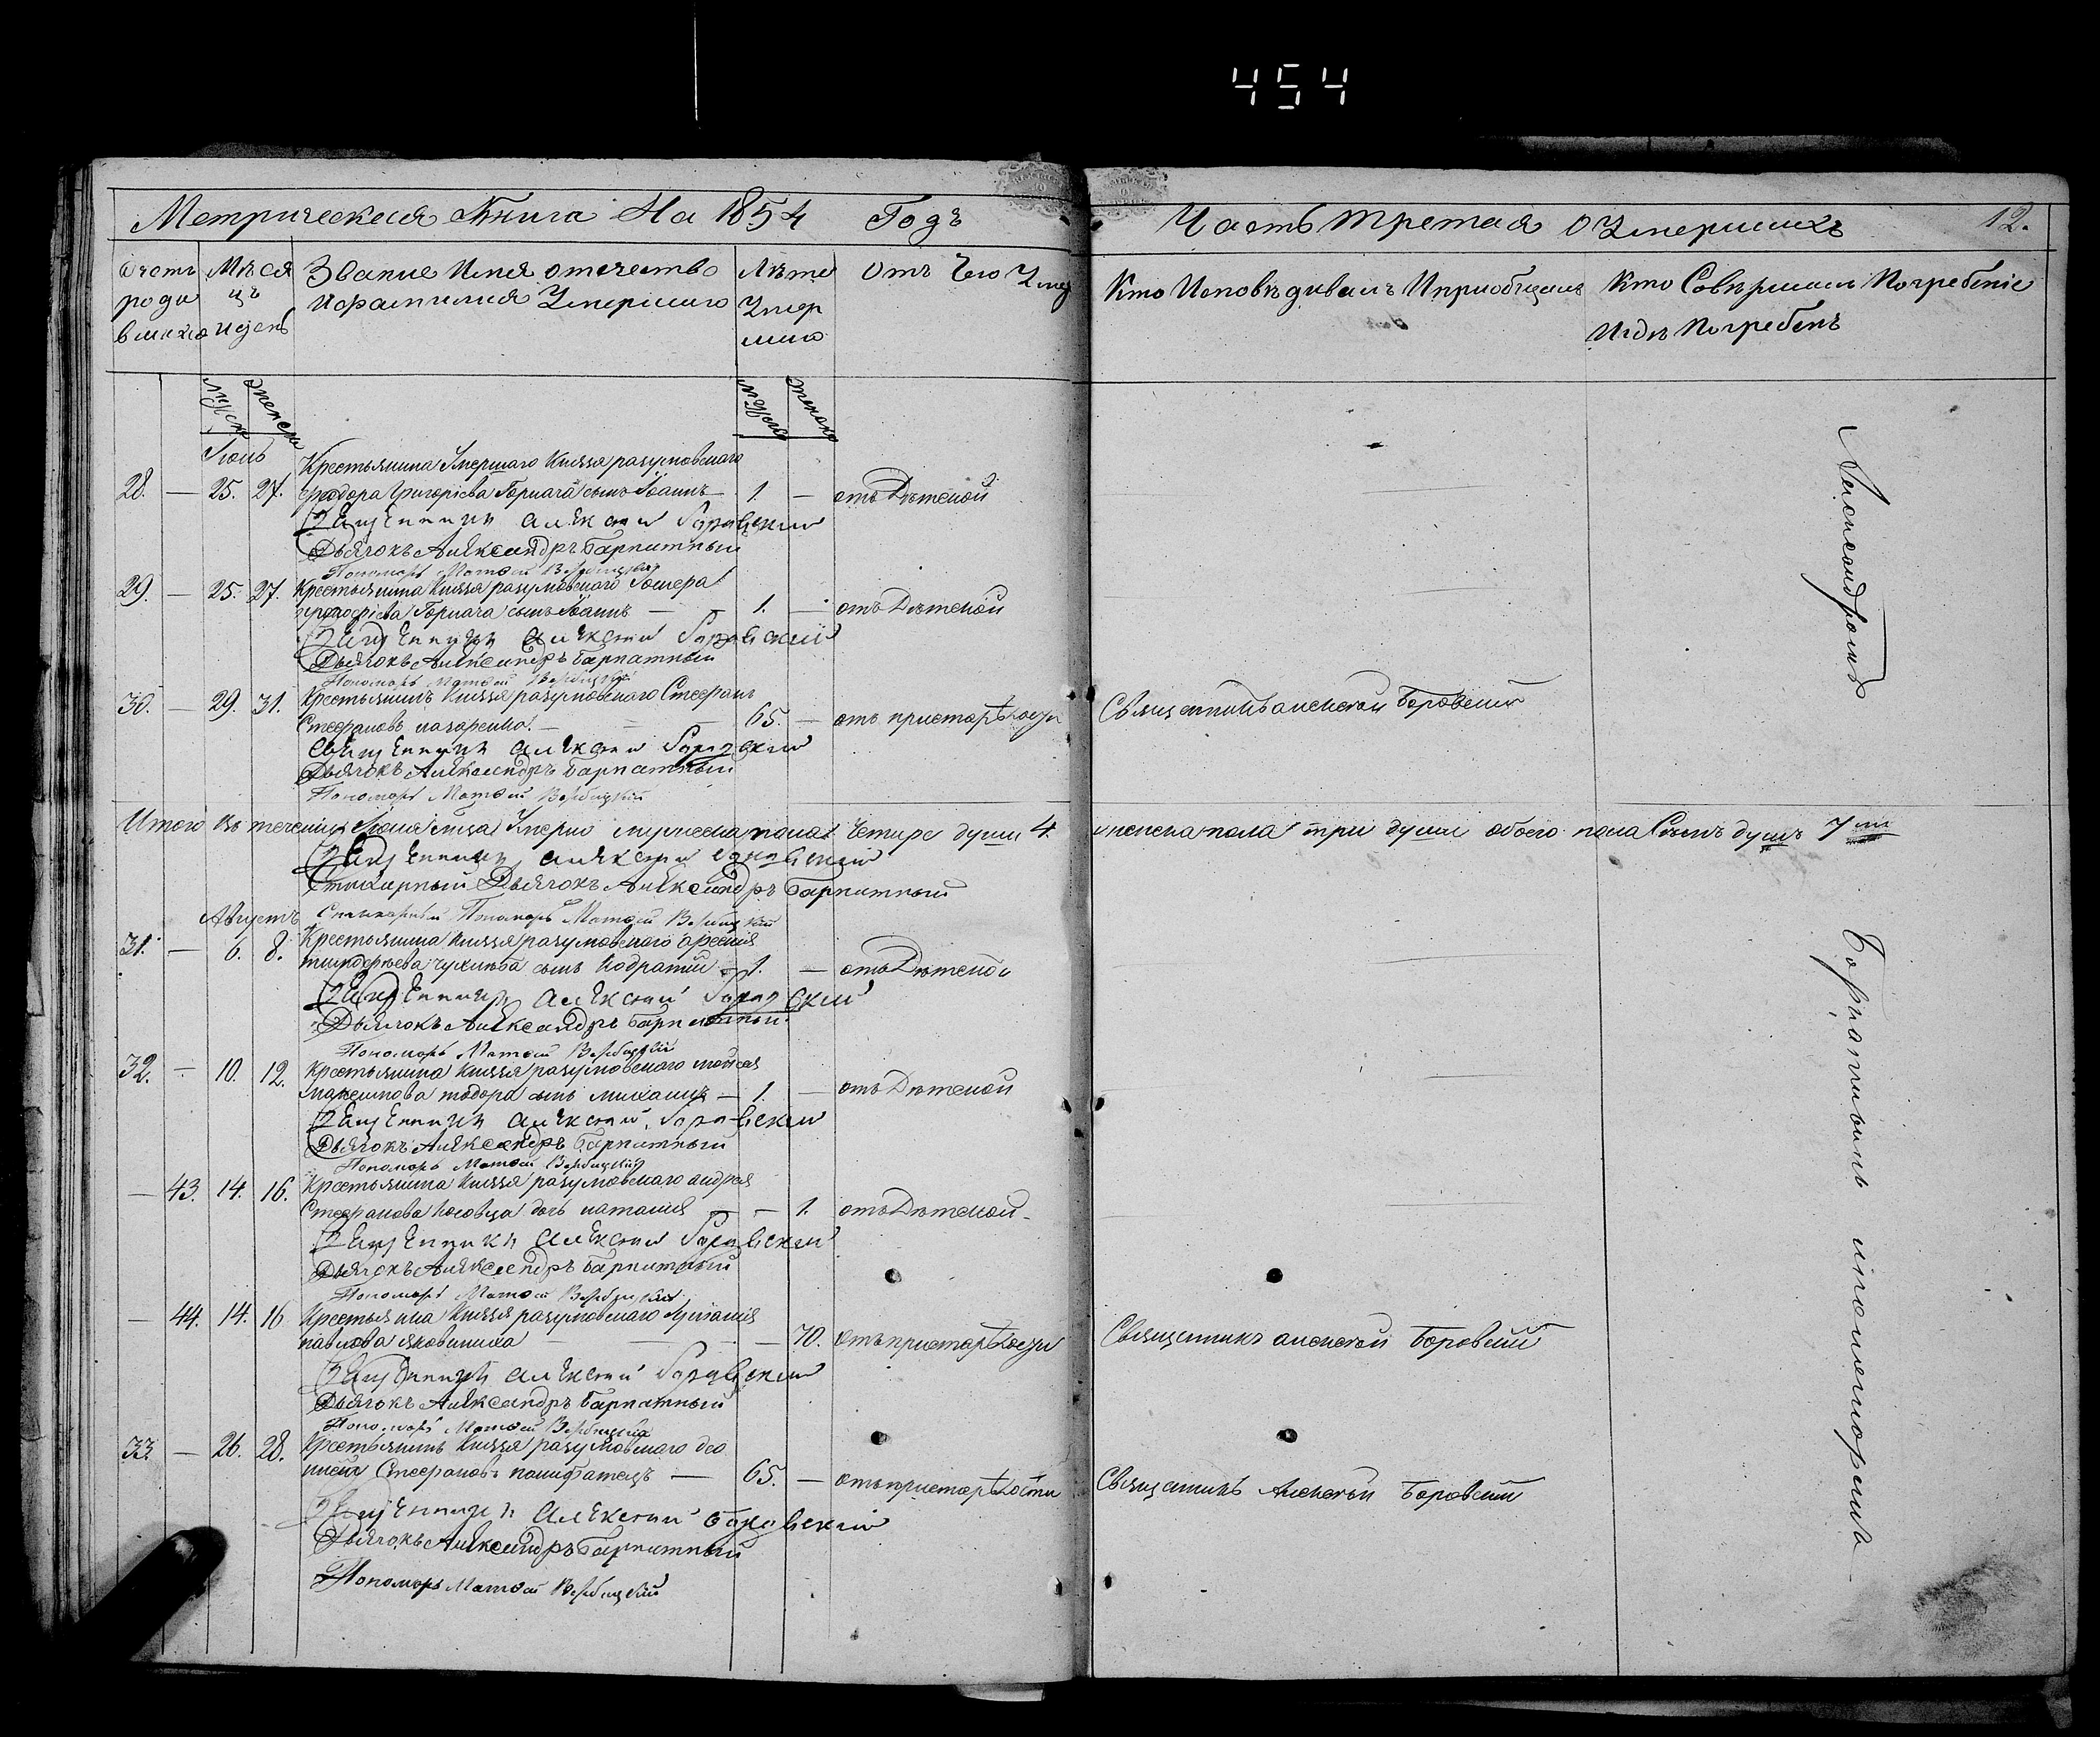 454
Метрическая Книга На 1854 Годъ
Часть третая о Умершихъ 12.
Счетъ родившихся
Мѣсяцъ и день
Званіе Имя отечество
и фамилия Умершаго
Лѣто Умершаго
Отъ Чего Умер
Кто Исповѣдивалъ И приобщалъ
Кто Совершалъ Погребеніе
И гдѣ Погребенъ
Іюль
Крестьянина Умершаго Князя разумовского
28. — 25. 27. феодора Григоріева Горкача сынъ Іоаннъ — 1. — отъ Дѣтской
Священникъ Алексѣй Боровский
Дьячокъ Александръ Барпатный
Пономарь Матвѣй Вербицкій
29. — 25. 27. Крестьянина Князя разумовского
Горкача сынъ Іоаннъ — — 1. — отъ Дѣтской
Священникъ Алексѣй Боровский
Дьячокъ Александръ Барпатный
Пономарь Матвѣй Вербицкій
30. — 29. 31. Крестьянинъ Князя разумовского Стефанъ
Стефановъ назаренко. — 65. — отъ престарѣлости Священникъ алексѣй Боровский
Священникъ Алексѣй Боровский
Дьячокъ Александръ Барпатный
Пономарь Матвѣй Вербицкій
Итого въ теченіи Іюля мѣца Умерло мужеска пола Четире души 4. и женска пола три души обоего пола Семъ душъ 7
Священникъ Алексѣй Боровский
Стихарный Дьячокъ Александръ Барпатный
Стихарный Пономарь Матвѣй Вербицкій
Августъ
31. — 6. 8. Крестьянина Князя разумовского арсенія
тимофѣева сынъ Кодратій — 1. — отъ Дѣтской
Священникъ Алексѣй Боровский
Дьячокъ Александръ Барпатный
Пономарь Матвѣй Вербицкій
32. — 10. 12. Крестьянина Князя разумовского мойсея
максимова тодора сынъ михаилъ — 1. — отъ Дѣтской
Священникъ Алексѣй Боровский
Дьячокъ Александръ Барпатный
Пономарь Матвѣй Вербицкій
— 43. 14. 16. Крестьянина Князя разумовского андрея
Стефанова Косовца дочь наталия — — 1. отъ Дѣтской
Священникъ Алексѣй Боровский
Дьячокъ Александръ Барпатный
Пономарь Матвѣй Вербицкій
— 44. 14. 16 Крестьянка Князя разумовского
павлова яковишиха — 70. отъ престарѣлости Священникъ алексѣй Боровский
Священникъ Алексѣй Боровский
Дьячокъ Александръ Барпатный
Пономарь Матвѣй Вербицкій
33. — 26. 28. Крестьянинъ Князя разумовского
Стефановъ — 65. — отъ престарѣлости Священникъ Алексѣй Боровский
Священникъ Алексѣй Боровский
Дьячокъ Александръ Барпатный
Пономарь Матвѣй Вербицкій